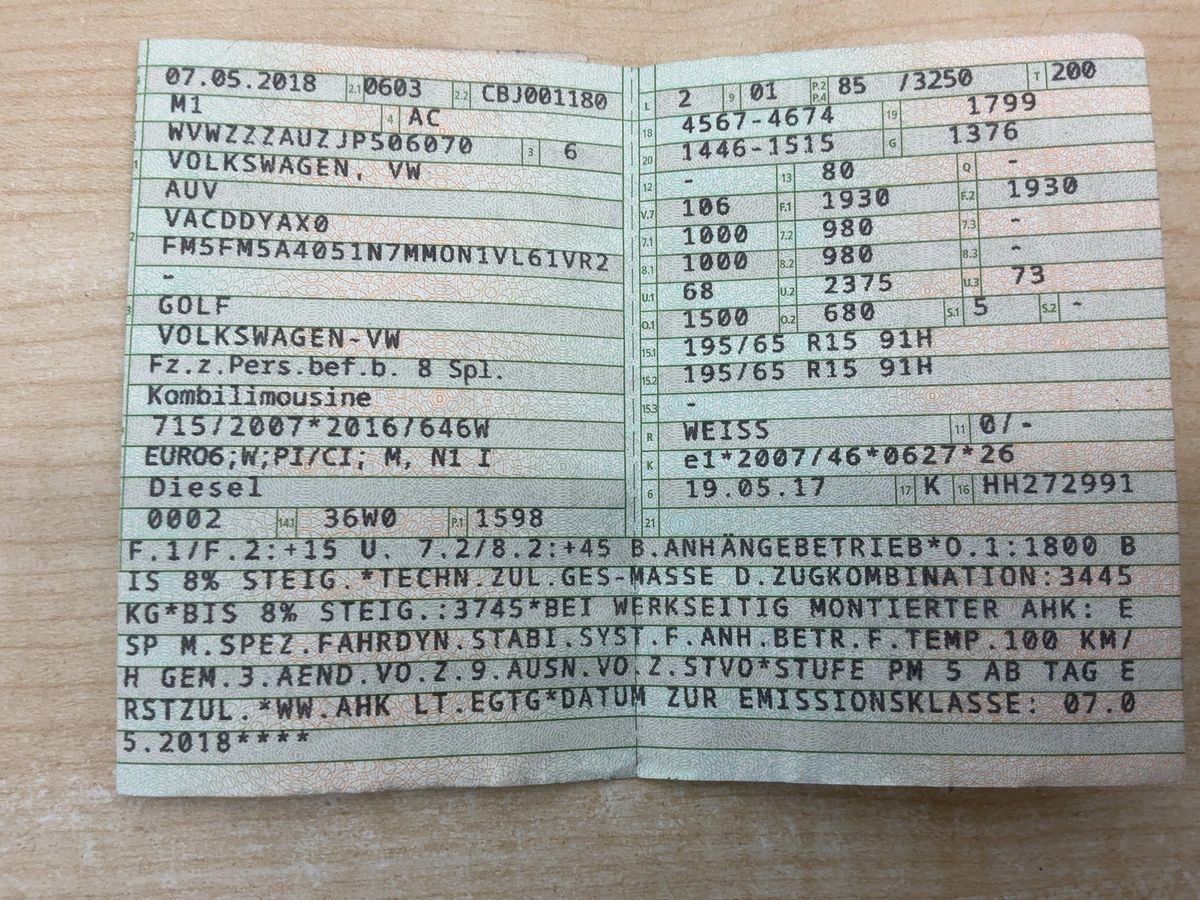 07.05.2018 2.1 0603 2.2 CBJ001180
M1 4 AC
WVWZZZAUZJP506070 3 6
VOLKSWAGEN, VW
AUV
VACDDYAX0
FM5FM5A4051N7MMON1VL61VR2
-
GOLF
VOLKSWAGEN-VW
Fz.z.Pers.bef.b. 8 Spl.
Kombilimousine
715/2007*2016/646W
EURO6;W;PI/CI; M, N1 I
Diesel
0002 14.1 36W0 P.1 1598
L 2 9 01 P.2 P.4 85 /3250 T 200
18 4567-4674 19 1799
20 1446-1515 G 1376
12 - 13 80 Q -
V.7 106 F.1 1930 F.2 1930
7.1 1000 7.2 980 7.3 -
8.1 1000 8.2 980 8.3 -
U.1 68 U.2 2375 U.3 73
O.1 1500 O.2 680 S.1 5 S.2 -
15.1 195/65 R15 91H
15.2 195/65 R15 91H
15.3 -
R WEISS 11 0/-
K e1*2007/46*0627*26
6 19.05.17 17 K 16 HH272991
21
F.1/F.2:+15 U. 7.2/8.2:+45 B.ANHÄNGEBETRIEB*O.1:1800 B
IS 8% STEIG.*TECHN.ZUL.GES-MASSE D.ZUGKOMBINATION:3445
KG*BIS 8% STEIG.:3745*BEI WERKSEITIG MONTIERTER AHK: E
SP M.SPEZ.FAHRDYN.STABI.SYST.F.ANH.BETR.F.TEMP.100 KM/
H GEM.3.AEND.VO.Z.9.AUSN.VO.Z.STVO*STUFE PM 5 AB TAG E
RSTZUL.*WW.AHK LT.EGTG*DATUM ZUR EMISSIONSKLASSE: 07.0
5.2018****